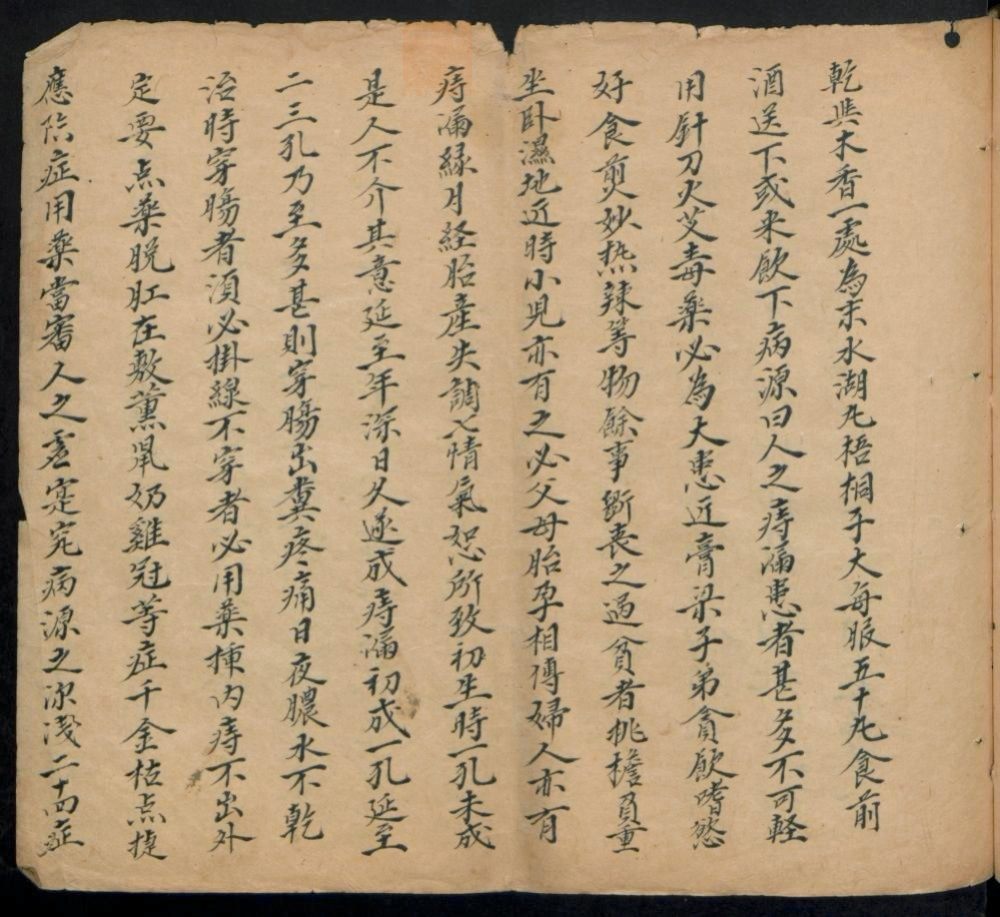 乾與木香一處為末水湖丸梧桐子大每服五十丸食前
酒送下或米飲下病源曰人之痔漏患者甚多不可軽
用針刀火艾毒藥必為大患近膏梁子弟貪飲嗜慾
好食煎炒热辣等物餘事斲丧之過貧者挑擔負重
坐卧濕地近時小児亦有之必父母胎孕相傳婦人亦有
痔漏緣月経胎産失調七情氣怒所致初生時一孔未成
是人不介其意延至年深日久遂成痔漏初成一孔延至
二三孔乃至多甚則穿腸出糞疼痛日夜膿水不乾
治時穿腸者湏必掛線不穿者必用藥揷内痔不出外
定要点藥脱肛在敷薰鼠奶雞冠等症千金枯点捷
應隂症用藥當審人之虛寔究病源之深淺二十四症